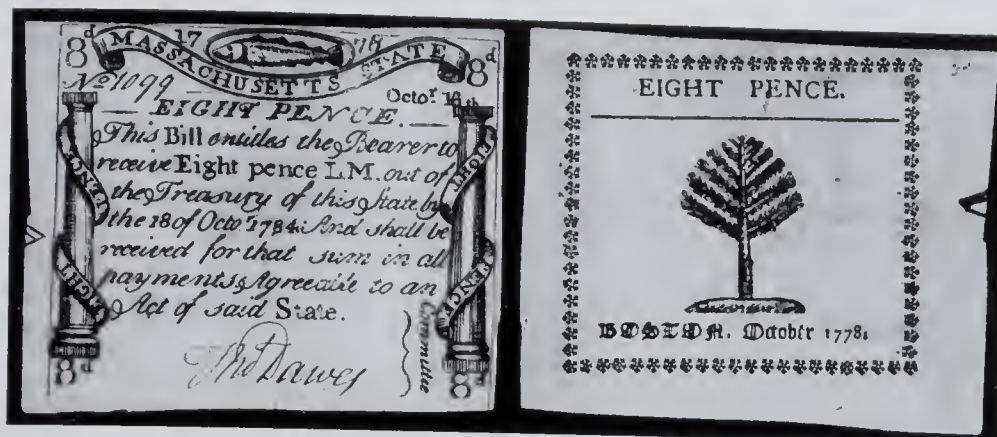 8d 17 78 8d
MASSACHUSETTS STATE
No 1099
Octor. 16th
EIGHT PENCE.
This Bill entitles the Bearer to
receive Eight pence L.M. out of
the Treasury of this State by
the 18 of Octor. 1784. And shall be
received for that sum in all
payments Agreeable to an
Act of said State.
Committee
Thos Dawes
EIGHT PENCE
EIGHT
EIGHT
PENCE
8d 8d
EIGHT PENCE.
BOSTON. October 1778.